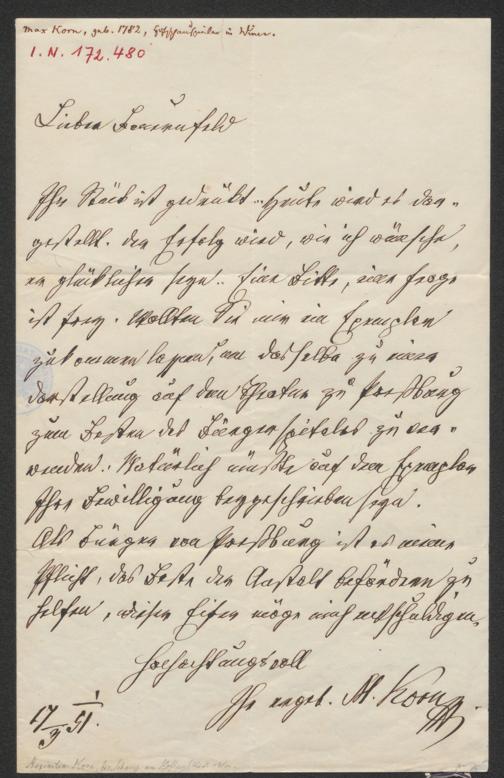 Max Korn, geb. 1782, Hofschauspieler in Wien.
I. N. 172.480
Lieber Bauernfeld
Ihr Stück ist gedrukt. Heute wird es dar-
gestellt. der Erfolg wird, wie ich wünsche,
ein glücklicher seyn.. Eine Bitte, eine Frage
ist frey. Wollten Sie mir ein Exemplar
zukommen lassen, um dasselbe zu einer
darstellung auf dem Theater zu Preßburg
zum Besten des Bürgerspitales zu ver-
wenden. Natürlich müßte auf dem Exemplar
Ihre Bewilligung beygeschrieben seyn.
Als Bürger von Preßburg ist es meine
Pflicht, das Beste der Anstalt befördern zu
helfen, dieser Eifer möge mich entschuldigen.
Hochachtungsvoll
Ihr ergeb. M. Korn
17/3 51.